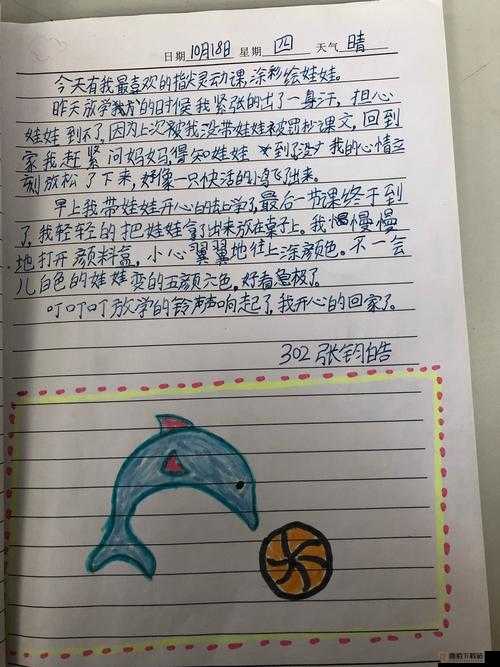 日期 10月18日 星期 四 天气 晴
今天有我最喜欢的指尖灵动课,涂彩绘娃娃。
昨天放学我的时候我紧张的出了一身汗,担心
娃娃到不了,因为上次我没带娃娃被罚抄课文,回到
家我赶紧问妈妈,得知娃娃到了,我的心情立
刻放松了下来,好像一只快活的小鸟飞了出来。
早上我带娃娃开心的去上学了,最后一节课终于到
了,我轻轻的把娃娃拿了出来放在桌子上。我慢慢
地打开颜料盒,小心翼翼地往上涂颜色。不一会
儿白色的娃娃变的五颜六色,好看急极了。
叮叮叮放学的铃声响起了,我开心的回家了。
302 张钧皓